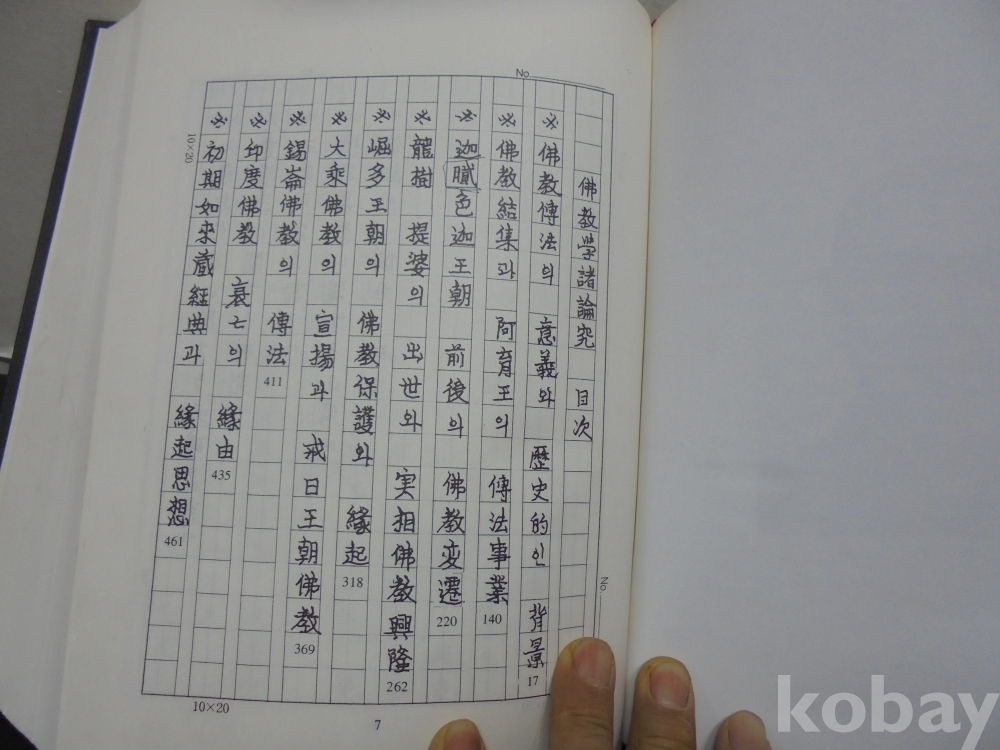 No.
佛教学諸論究 目次
※ 佛教傳法의 意義와 歷史的인 背景 17
※ 佛教結集과 阿育王의 傳法事業 140
※ 迦膩色迦王朝 前後의 佛教変遷 220
※ 龍樹 提婆의 出世와 実相佛教興隆 262
※ 崛多王朝의 佛教保護와 緣起 318
※ 大乘佛教의 宣揚과 戒日王朝佛教 369
※ 錫崙佛教의 傳法 411
※ 印度佛教 衰亡의 緣由 435
※ 初期如來藏經典과 緣起思想 461
10×20
No.
10×20
7
kobay